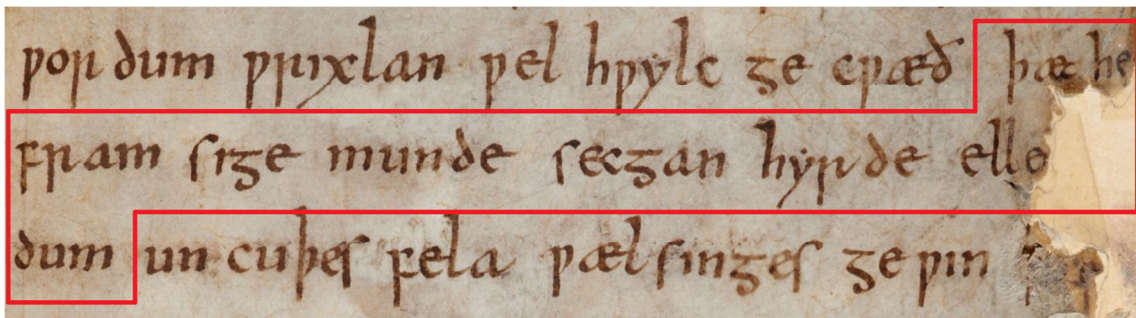 ƿordum ƿrixlan ƿel hƿylc ge cƿæð þæt he
fram sige munde secgan hyrde elle
dum un cuþes fela ƿælsinges ge ƿin